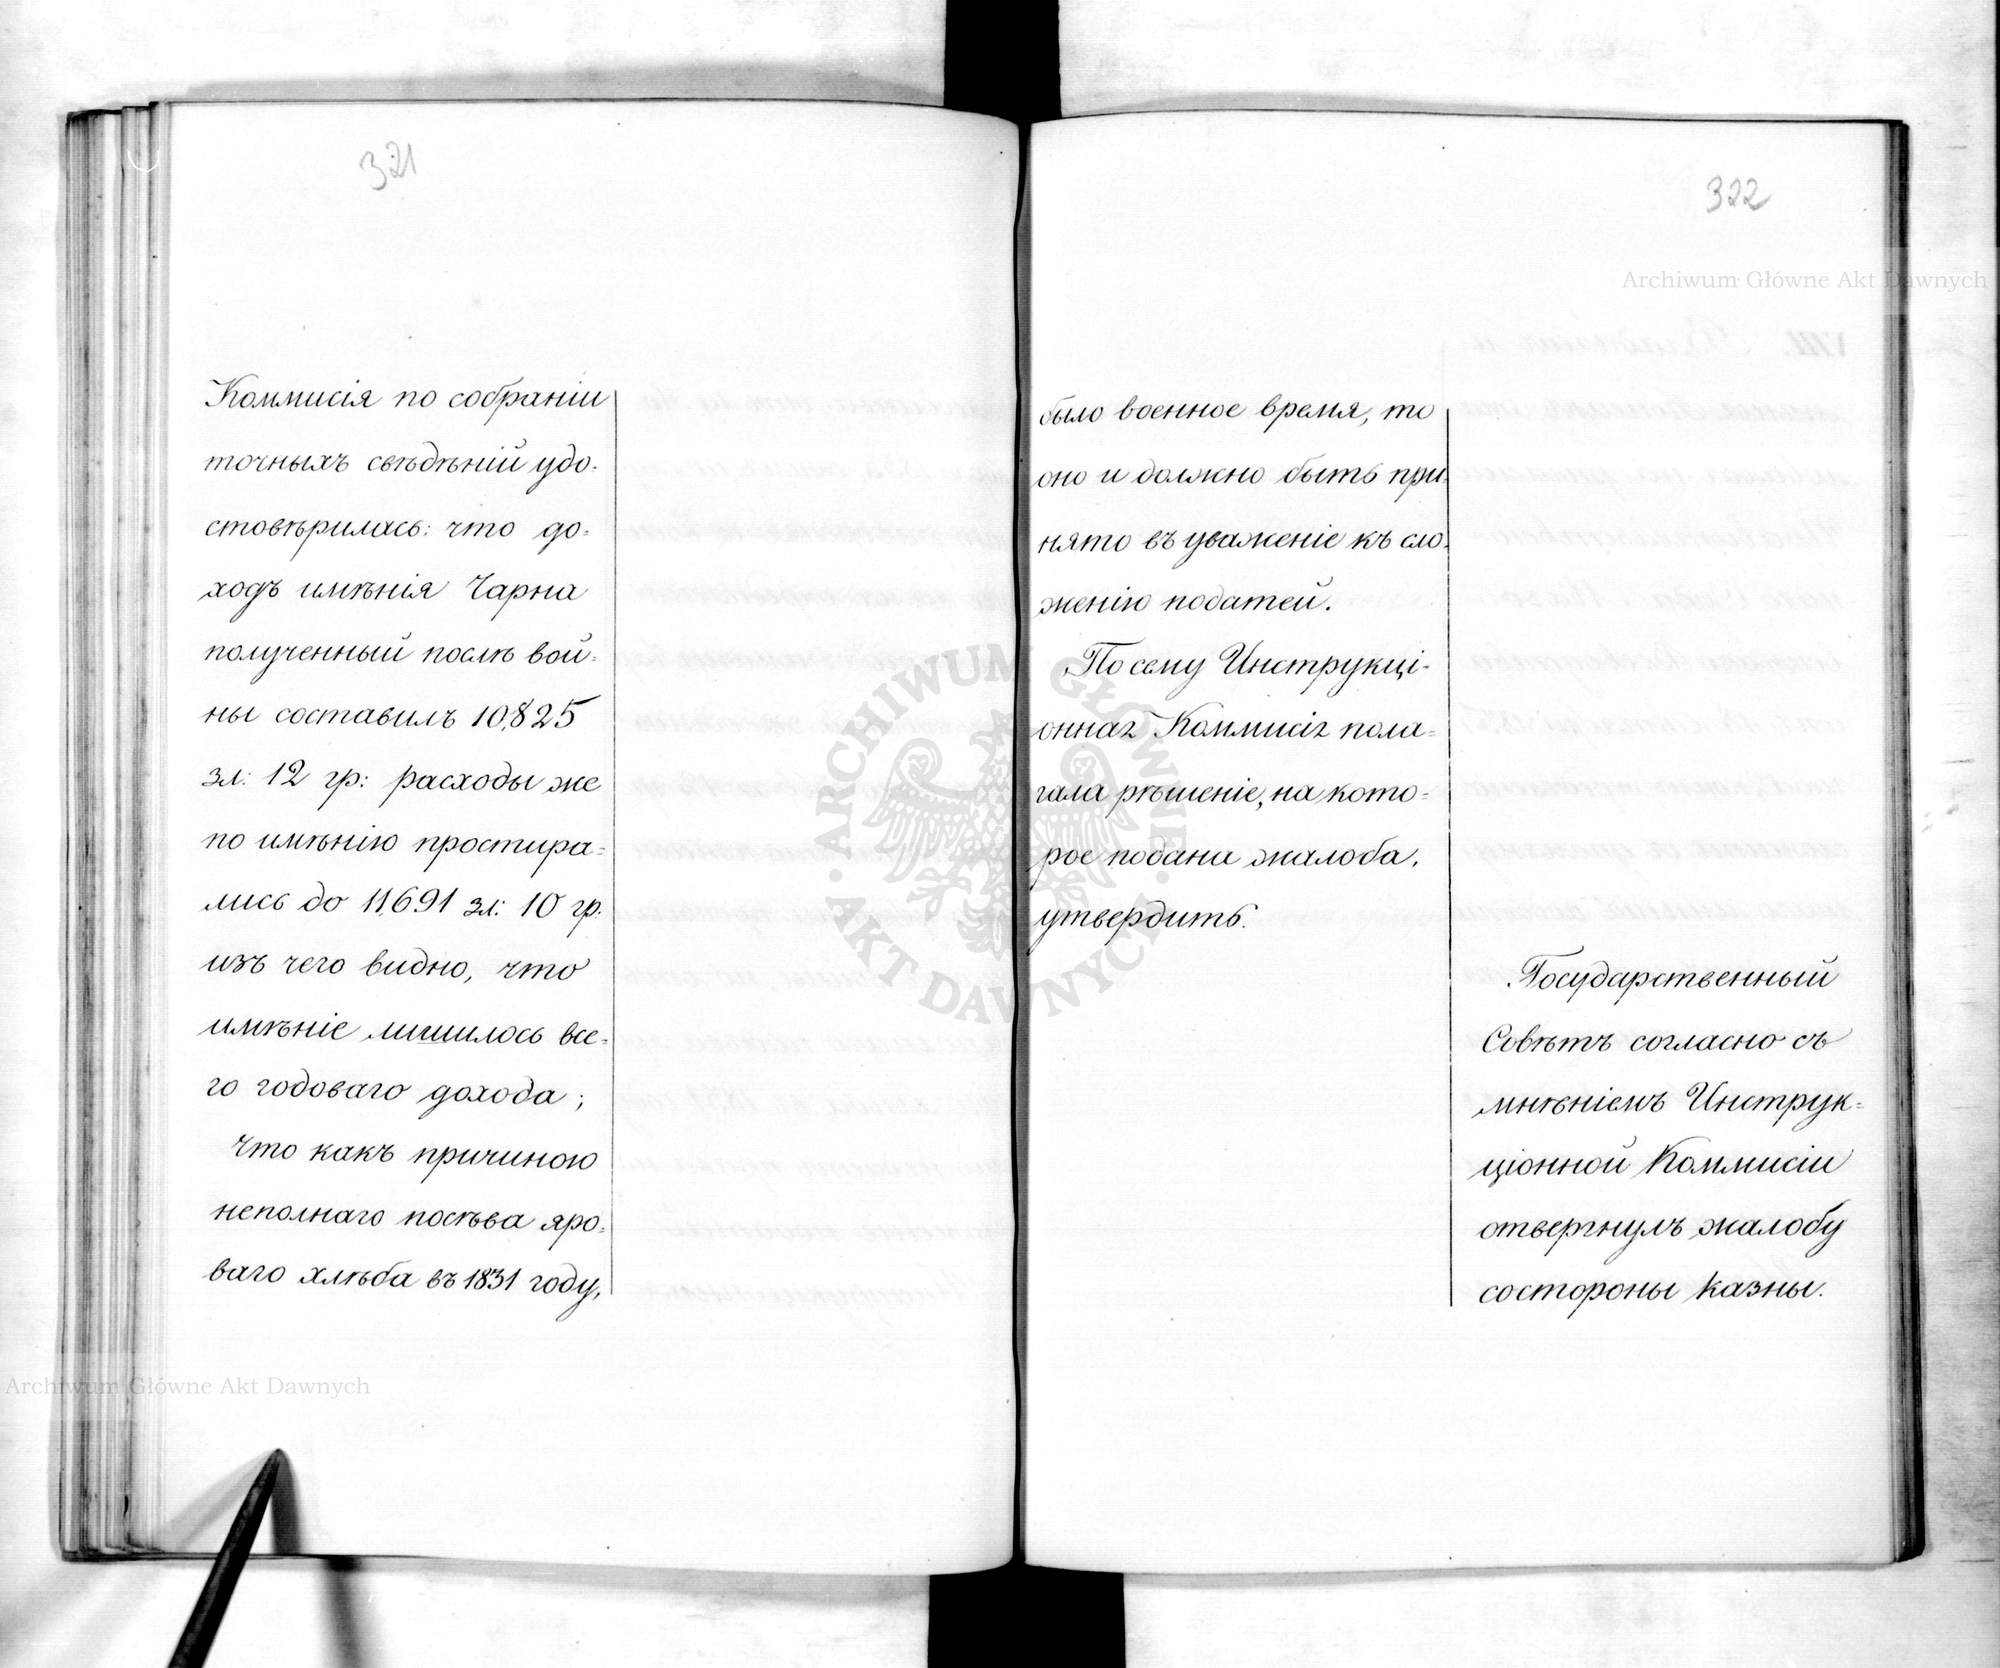 321
Коммисія по собраніи
точныхъ свѣдѣній удо-
стовѣрилась: что до-
ходъ имѣнія Чарна
полученный послѣ вой-
ны составилъ 10,825
зл: 12 гр: расходы же
по имѣнію простира-
лись до 11,691 зл: 10 гр:
изъ чего видно, что
имѣніе лишилось все-
го годоваго дохода;
Что какъ причиною
неполнаго посѣва яро-
ваго хлѣба въ 1831 году,
322
было военное время, то
оно и должно быть при-
нято въ уваженіе къ сло-
женію податей.
По сему Инструкці-
онная Коммисія пола-
гала рѣшеніе, на кото-
рое подана жалоба,
утвердить.
Государственный
Совѣтъ согласно съ
мнѣніемъ Инструк-
ціонной Коммисіи
отвергнулъ жалобу
состороны казны.
Archiwum Główne Akt Dawnych
Archiwum Główne Akt Dawnych
ARCHIWUM GŁÓWNE · AKT DAWNYCH ·